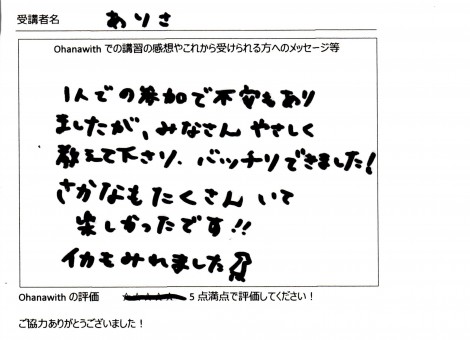 受講者名 ありさ
Ohanawith での講習の感想やこれから受けられる方へのメッセージ等
1人での参加で不安もあり
ましたが、みなさん やさしく
教えて下さり、バッチリできました!
さかなもたくさん いて
楽しかったです!!
イカもみれました
Ohanawith の評価 ★★★★★ 5 点満点で評価してください！
ご協力ありがとうございました！